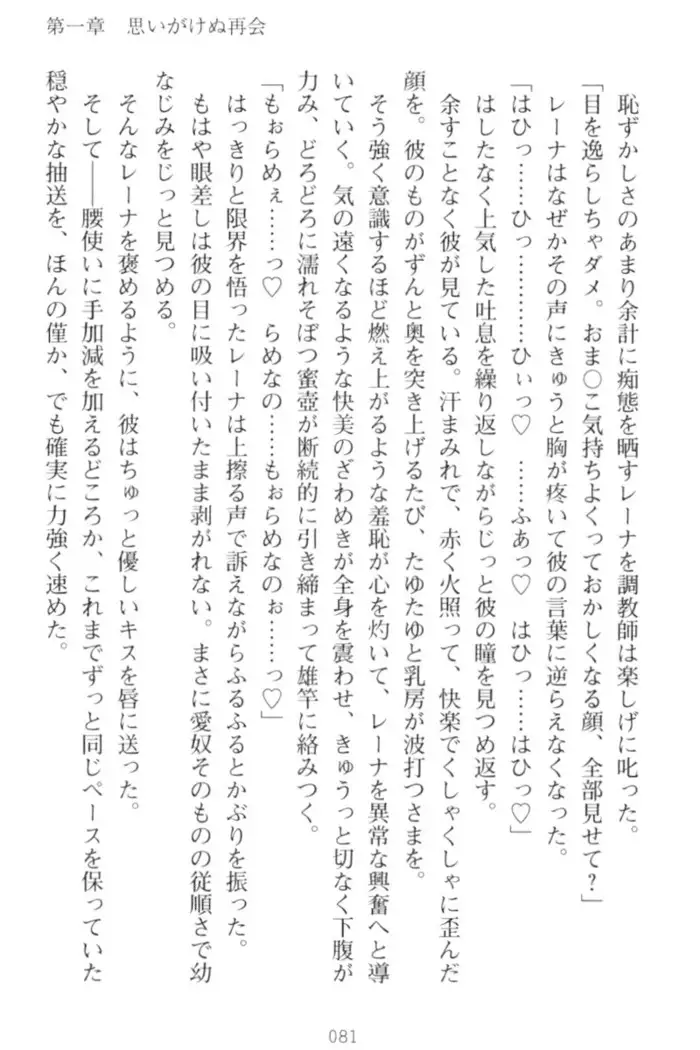 第一章　思いがけぬ再会
恥ずかしさのあまり余計に痴態を晒すレーナを調教師は楽しげに叱った。
「目を逸らしちゃダメ。おま〇こ気持ちよくっておかしくなる顔、全部見せて？」
レーナはなぜかその声にきゅうと胸が疼いて彼の言葉に逆らえなくなった。
「はひっ……ひっ…………ひぃっ♡　……ふあっ♡　はひっ……はひっ♡」
はしたなく上気した吐息を繰り返しながらじっと彼の瞳を見つめ返す。
余すことなく彼が見ている。汗まみれで、赤く火照って、快楽でくしゃくしゃに歪んだ
顔を。彼のものがずんと奥を突き上げるたび、たゆたゆと乳房が波打つさまを。
そう強く意識するほど燃え上がるような羞恥が心を灼いて、レーナを異常な興奮へと導
いていく。気の遠くなるような快美のざわめきが全身を震わせ、きゅうっと切なく下腹が
力み、どろどろに濡れそぼつ蜜壺が断続的に引き締まって雄竿に絡みつく。
「もぉらめぇ……っ♡　らめなの……もぉらめなのぉ……っ♡」
はっきりと限界を悟ったレーナは上擦る声で訴えながらふるふるとかぶりを振った。
もはや眼差しは彼の目に吸い付いたまま剥がれない。まさに愛奴そのものの従順さで幼
なじみをじっと見つめる。
そんなレーナを褒めるように、彼はちゅっと優しいキスを唇に送った。
そして――腰使いに手加減を加えるどころか、これまでずっと同じペースを保っていた
穏やかな抽送を、ほんの僅か、でも確実に力強く速めた。
081